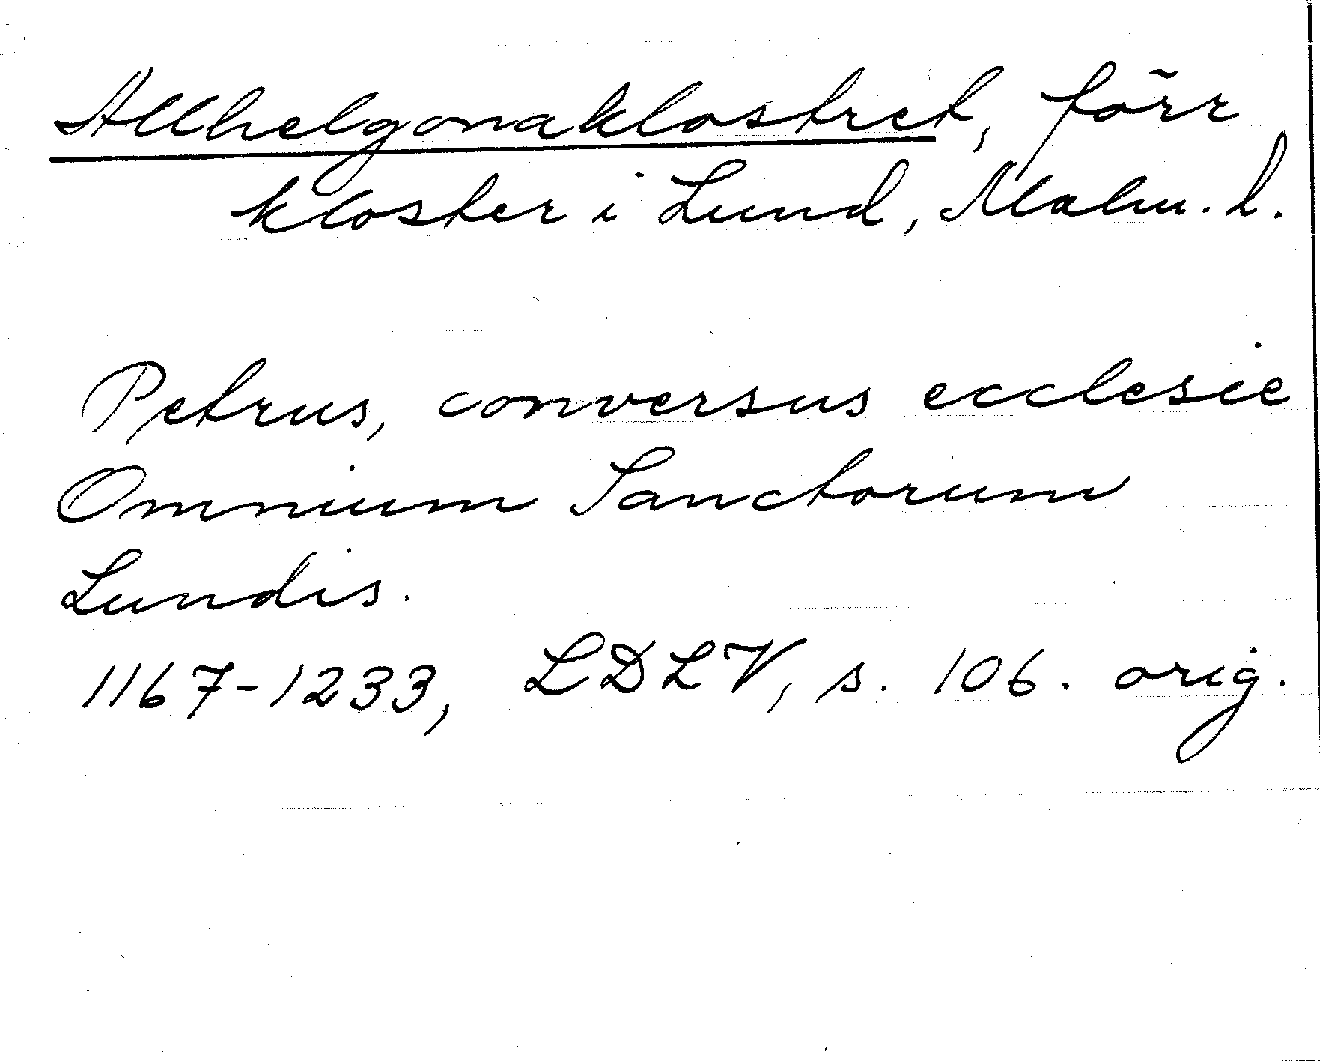 Allhelgonaklostret, förr
kloster i Lund, Malm. l.
Petrus, conversus ecclesie
Omnium Sanctorum
Lundis.
1167-1233, LDLV, s. 106. orig.